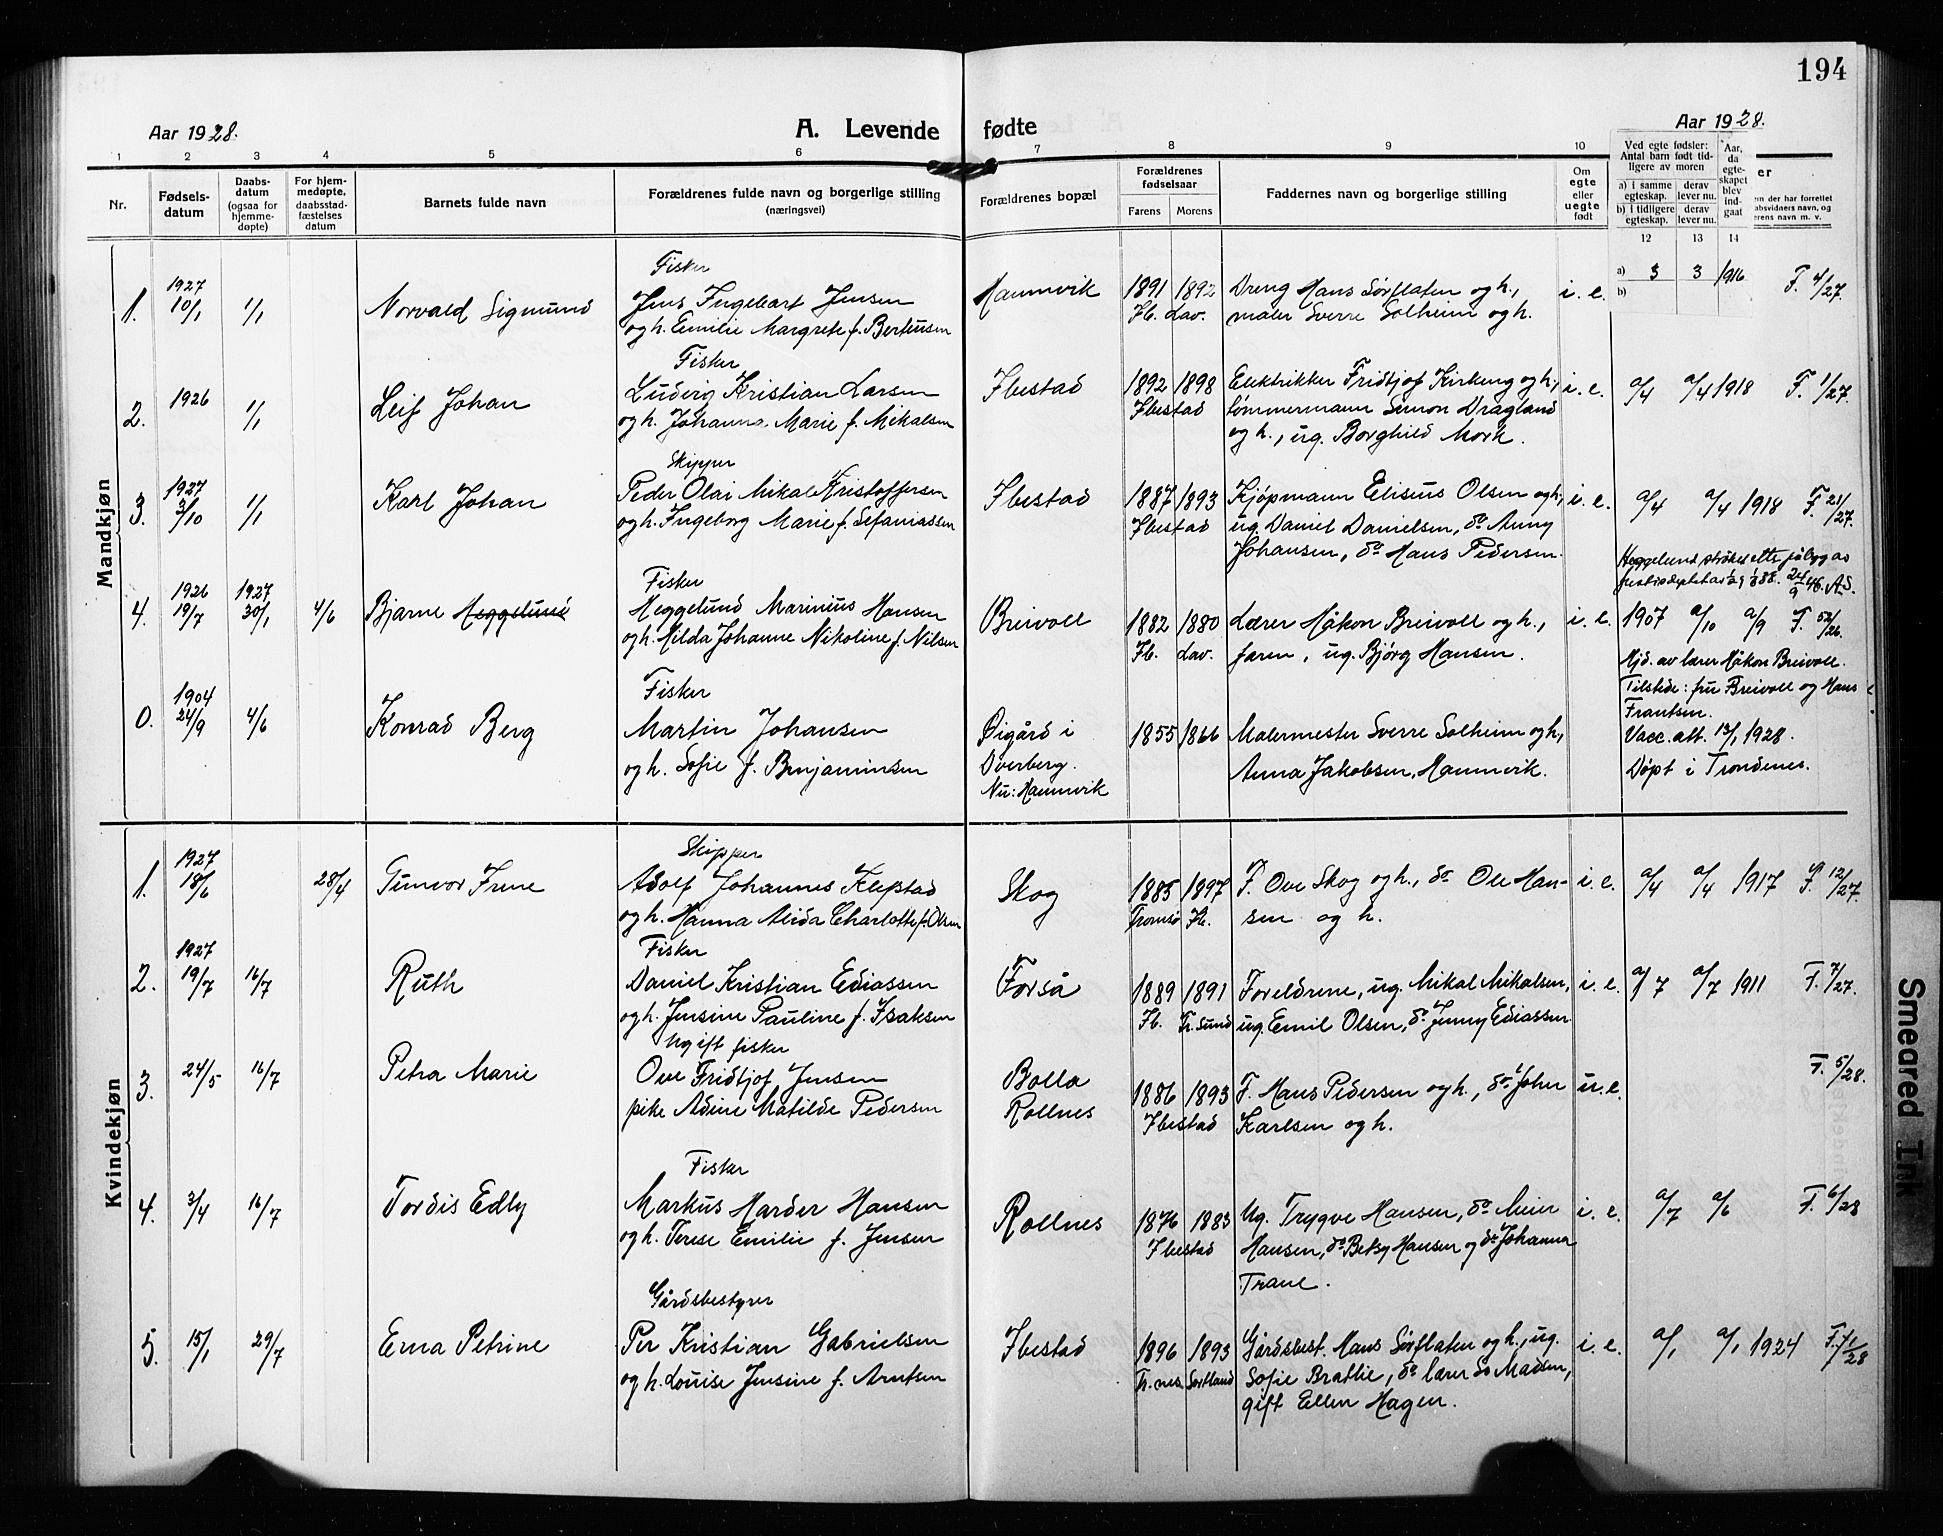 194
Aar 1928.
A. Levende fødte
Aar 1928.
1 2 3 4 5 6 7 8 9 10
Nr.
Fødsels-
datum
Daabs-
datum
(ogsaa for
hjemme-
døpte)
For hjem-
medøpte,
daabsstad-
fæstelses
datum
Barnets fulde navn
Forældrenes fulde navn og borgerlige stilling
(næringsvei)
Forældrenes bopæl
Forældrenes
fødselsaar
Farens Morens
Faddernes navn og borgerlige stilling
Om
egte
eller
uegte
født
Ved egte fødsler:
Antal barn født tid-
ligere av moren
a) i samme
egteskap.
derav
lever nu.
b) i tidligere
egteskap.
derav
lever nu.
Aar,
da
egte-
skapet
blev
ind-
gaat
er
en der har forrettet
absvidners navn, og
erens navn m. v.
12 13 14
Mandkjøn
Fisker
1. 1927 10/1 1/1 Norvald Sigmund Jens Ingebart Jensen Hamnvik 1891 1892 Dreng Hans Sørflaten og h., i. e. a) 3 3 1916 F. 4/27.
og h. Emilie Margrete f. Berteusen Ib. Lav. maler Sverre Solheim og h. b)
Fisker
2. 1926 1/1 Leif Johan Ludvig Kristian Larsen Ibestad 1892 1898 Elektrikker Fridtjof Kirkeng og h., i. e. a/4 a/4 1918 F. 1/27.
og h. Johanna Marie f. Mikalsen Ibestad tømmermann Simon Dragland
og h., ug. Borghild Mork.
Skipper
3. 1927 3/10 1/1 Karl Johan Peder Olai Mikal Kristoffersen Ibestad 1887 1893 Kjøpmann Elisius Olsen og h., i. e. a/4 a/4 1918 F. 21/27.
og h. Ingeborg Marie f. Sefaniassen Ibestad ug. Daniel Danielsen, do Anny
Johansen, do Hans Pedersen.
Heggelund strøket efter
24/9 46. A.S.
Fisker
4. 1926 19/7 1927 30/1 4/6 Bjarne Heggelund Heggelund Marinius Hansen Breivoll 1882 1880 Lærer Håkon Breivoll og h., i. e. 1907 a/10 a/9 F. 52/26.
og h. Hilda Johanne Nikoline f. Nilsen Ib. Lav. faren, ug. Bjørg Hansen.
Hjd. av lærer Håkon Breivoll.
Tilstede: fru Breivoll og Hans
Frantsen.
Fisker
0. 1904 24/9 4/6 Konrad Berg Martin Johansen Øigård i 1855 1866 Malermester Sverre Solheim og h, Vacc. att. 13/1 1928.
og h. Sofie f. Benjaminsen Dverberg. Anna Jakobsen, Hamnvik. Døpt i Trondenes.
Nu: Hamnvik
Kvindekjøn
Skipper
1. 1927 18/6 28/4 Gunvor Irene Adolf Johannes Klepstad Skog 1885 1897 F. Ove Skog og h., do Ole Han- i. e. a/4 a/4 1917 F. 12/27.
og h. Hanna Alida Charlotte f. Olsen Tromsø Ib. sen og h.
Fisker
2. 1927 19/7 16/7 Ruth Daniel Kristian Ediassen Forså 1889 1891 Foreldrene, ug. Mikal Mikalsen, i. e. a/7 a/7 1911 F. 7/27.
og h. Jensine Pauline f. Isaksen Ib. Tr. sund ug. Emil Olsen, do Jenny Ediassen
Ugift fisker
3. 24/5 16/7 Petra Marie Ove Fridtjof Jensen Bolla 1886 1893 F. Hans Pedersen og h., do John u. e. F. 5/28.
pike Adine Matilde Pedersen Rollnes Ibestad Karlsen og h.
Fisker
4. 3/4 16/7 Tordis Edly Markus Harder Hansen Rollnes 1876 1883 Ug. Trygve Hansen, do Meier i. e. a/7 a/6 F. 6/28
og h. Terese Emilie f. Jensen Ibestad Hansen, do Betsy Hansen og do Johanna
Trane.
Gårdsbestyrer
5. 15/1 29/7 Erna Petrine Per Kristian Gabrielsen Ibestad 1896 1893 Gårdsbest. Hans Sørflaten og h., ug. i. e. a/1 a/1 1924 F. 41/28
og h. Louise Jensine f. Arntsen Tr.nes Sortland Sofie Bratlie, do lærer Madsen,
gift Ellen Hagen.
Smeared Ink